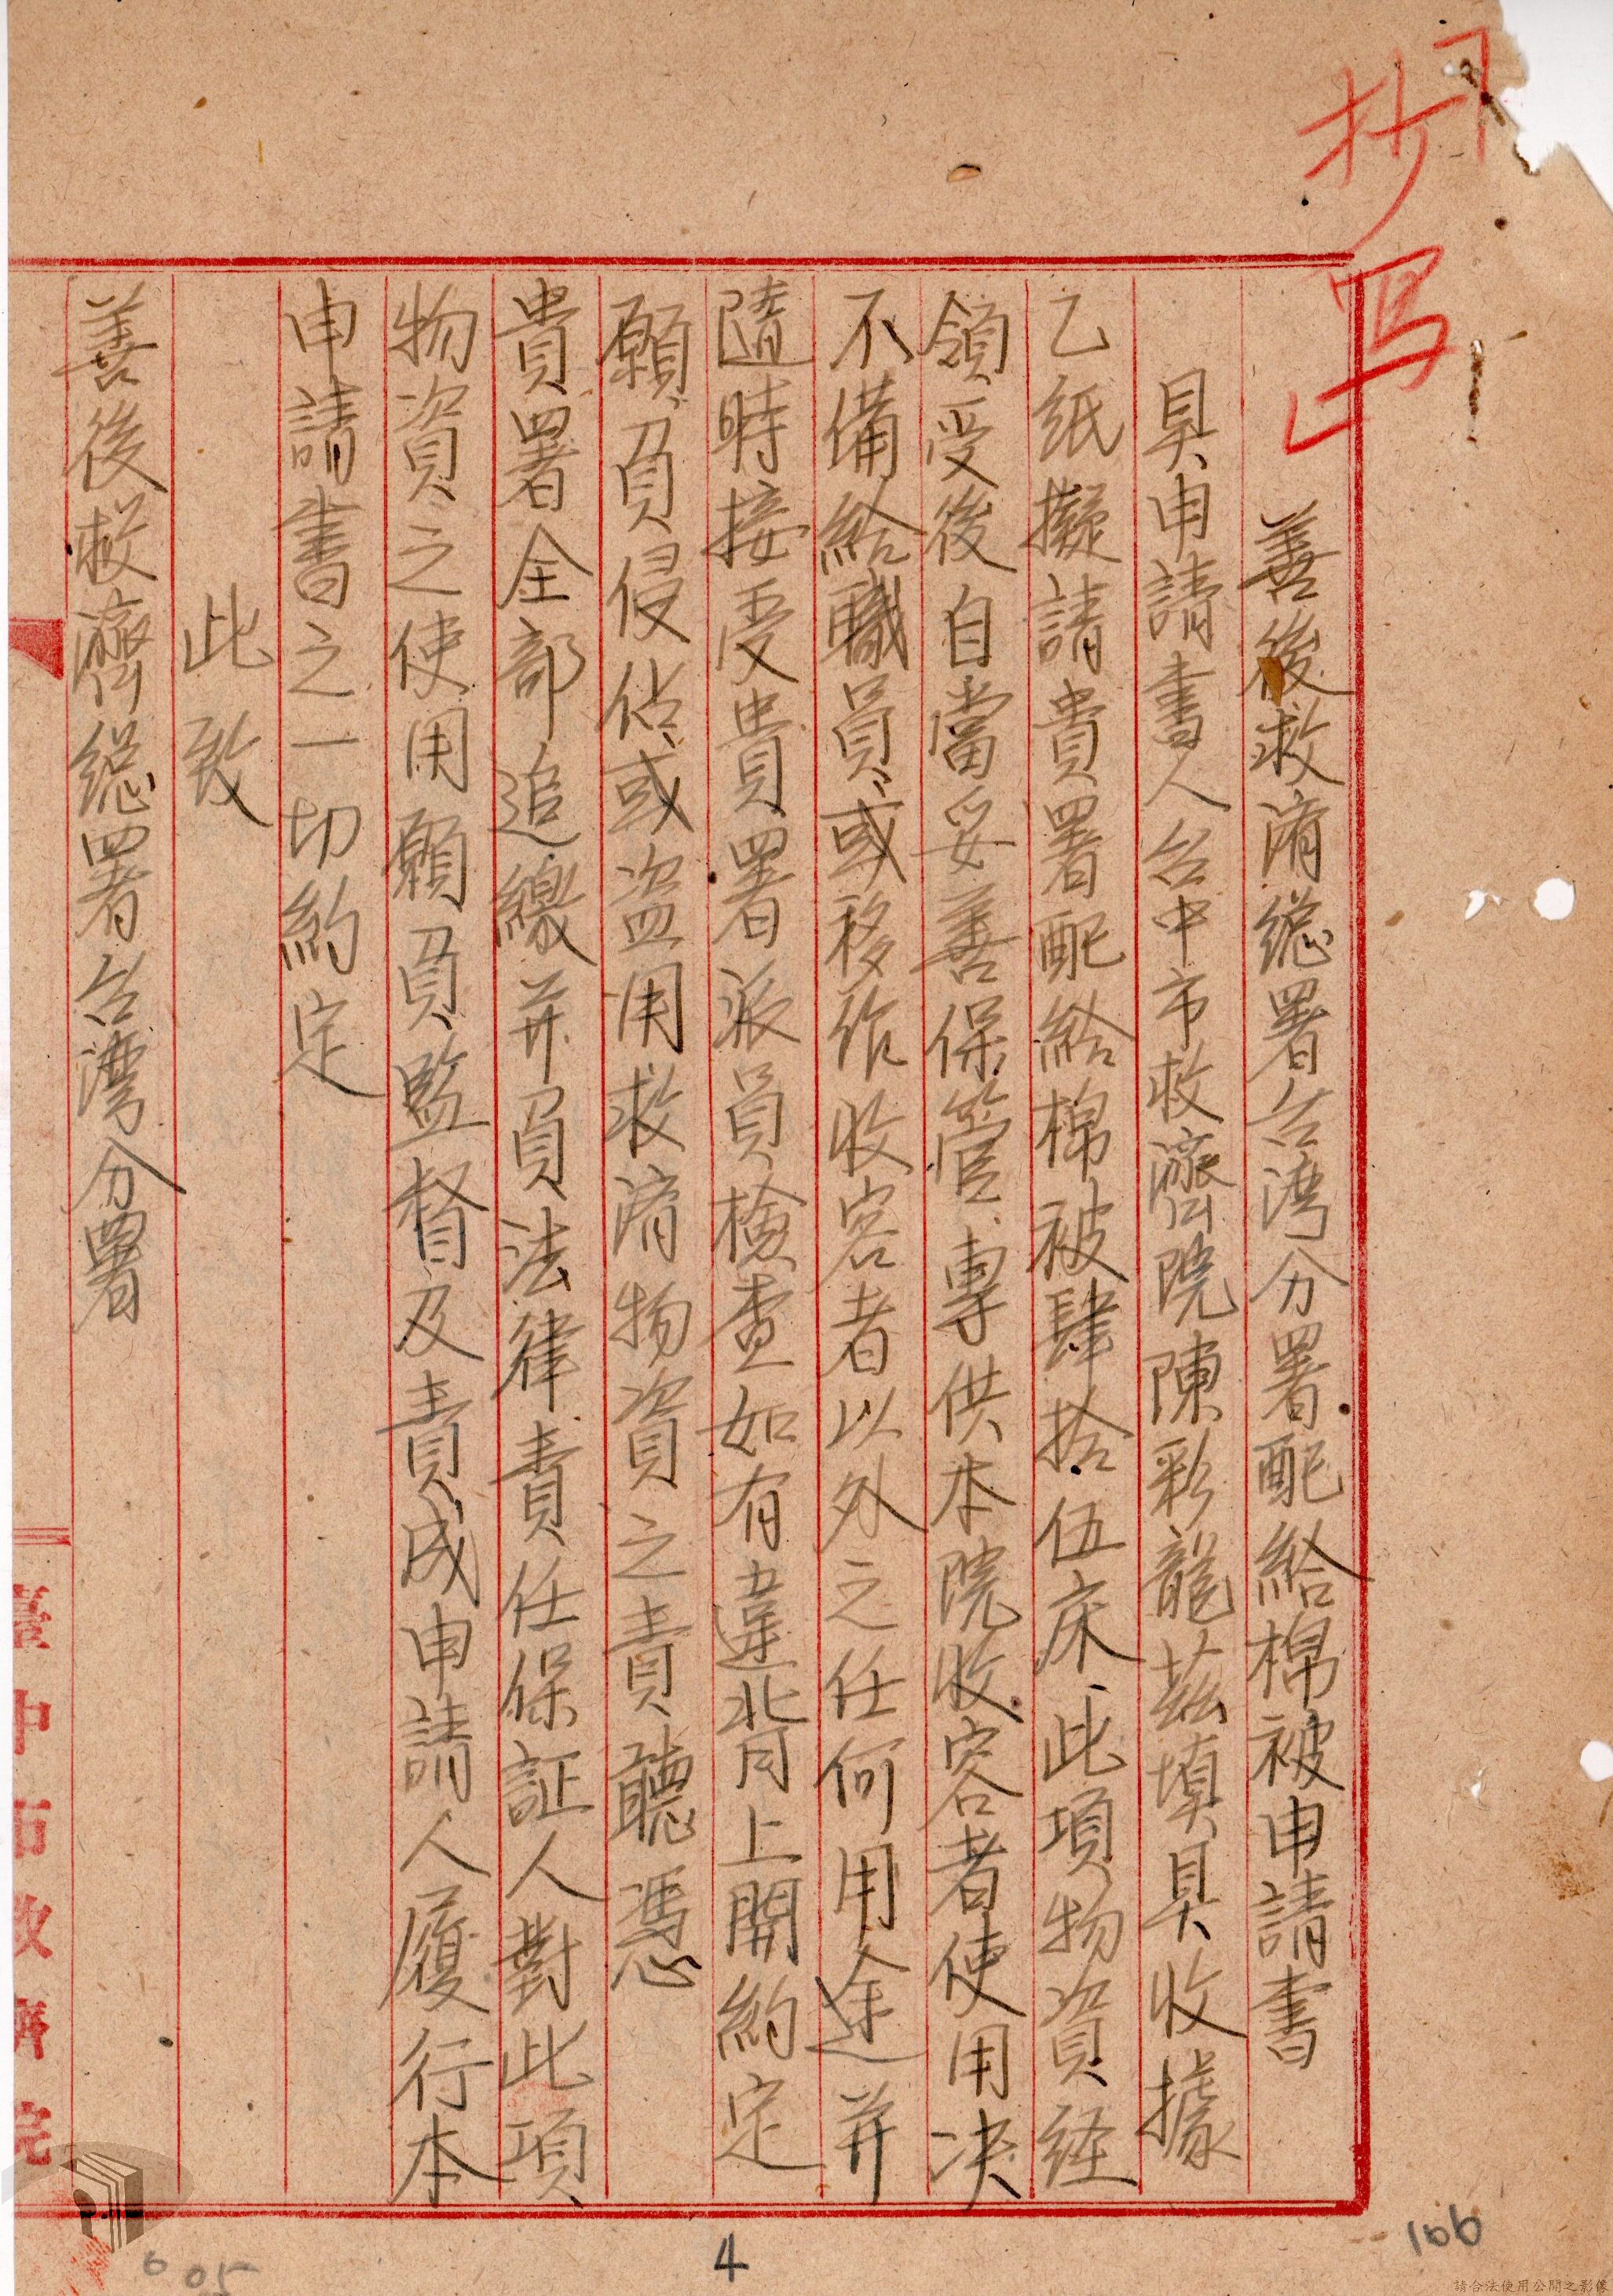 抄写
善後救済総署台湾分署配給棉被申請書
具申請書人台中市救濟院陳彩龍茲填具收據
乙紙擬請貴署配給棉被肆拾伍床此項物資経
領受後自當妥善保管專供本院收容者使用决
不備給職員或移作收容者以外之任何用途并
隨時接受貴署派員檢查如有違背上開約定
願負侵佔或盗用救済物資之責聽憑
貴署全部追繳并負法律責任保証人對此項
物資之使用願負監督及責成申請人履行本
申請書之一切約定
此致
善後救濟総署台灣分署
臺中市救濟院
4
106
605
請合法使用公開之影像